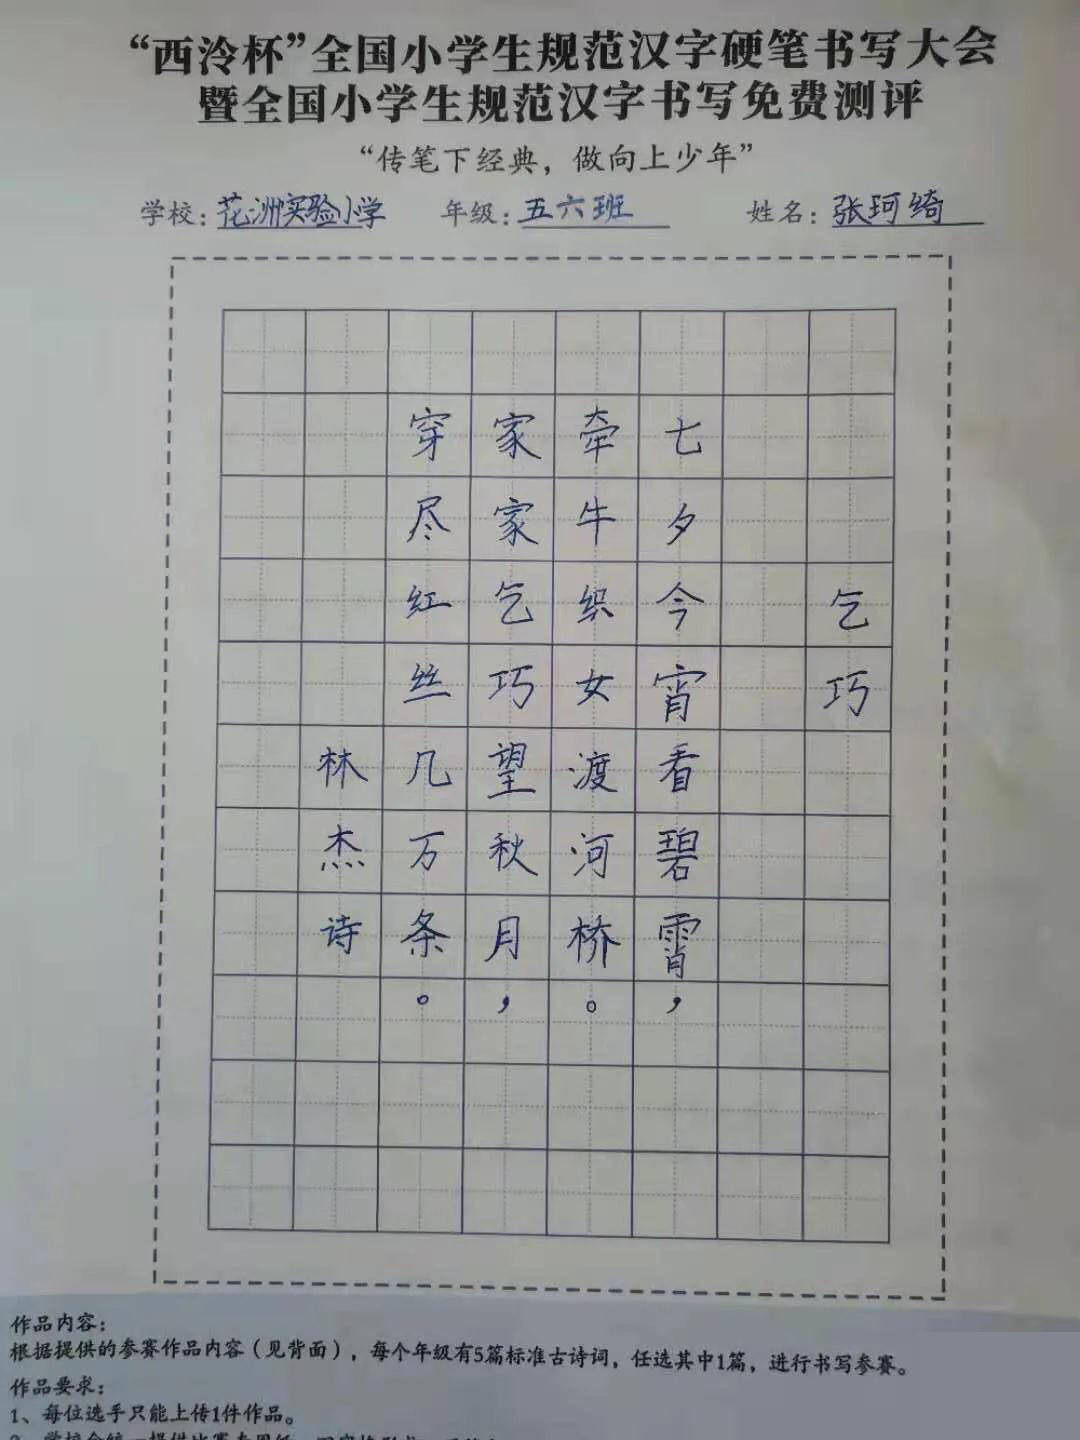 “西泠杯”全国小学生规范汉字硬笔书写大会
暨全国小学生规范汉字书写免费测评
“传笔下经典，做向上少年”
学校：花洲实验小学 年级：五六班 姓名：张珂绮
乞巧
七夕今宵看碧霄，
牵牛织女渡河桥。
家家乞巧望秋月，
穿尽红丝几万条。
林杰诗
作品内容：
根据提供的参赛作品内容（见背面），每个年级有5篇标准古诗词，任选其中1篇，进行书写参赛。
作品要求：
1、每位选手只能上传1件作品。